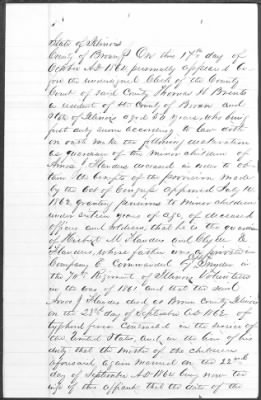 State of Illinois
County of Brown } On this 17th day of
October A.D. 1864 personally appeared be-
fore the undersigned Clerk of the County
Court of said County Thomas H Brents
a resident of the County of Brown and
State of Illinois aged 36 years, who being
first duly sworn according to law doth
on oath make the following declaration
as Guardian of the minor children of
Amos J Flanders deceased in order to ob-
tain the benefits of the provision made
by the Act of Congress approved July 14
1862, granting pensions to minor children
under sixteen years of age, of deceased
officers and soldiers, that he is the guardian
of Herbert M Flanders and Clyde E
Flanders, whose father was a private in
Company E Commanded by
the 70th Regiment of Illinois Volunteers
in the war of 1861 and that the said
Amos J Flanders died in Brown County Illinois
on the 23rd day of September A.D. 1862 of
typhoid fever contracted in the service of
the United States, and in the line of his
duty that the mother of the children
aforesaid again married on the 22nd
day of September A.D. 1864 being now the
wife of this affiant that the date of the